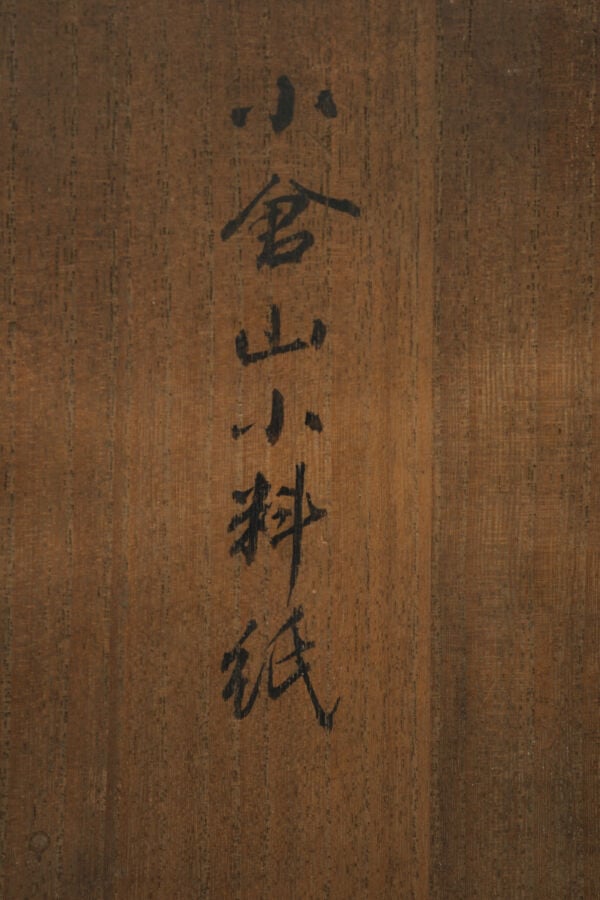 小倉山小料紙